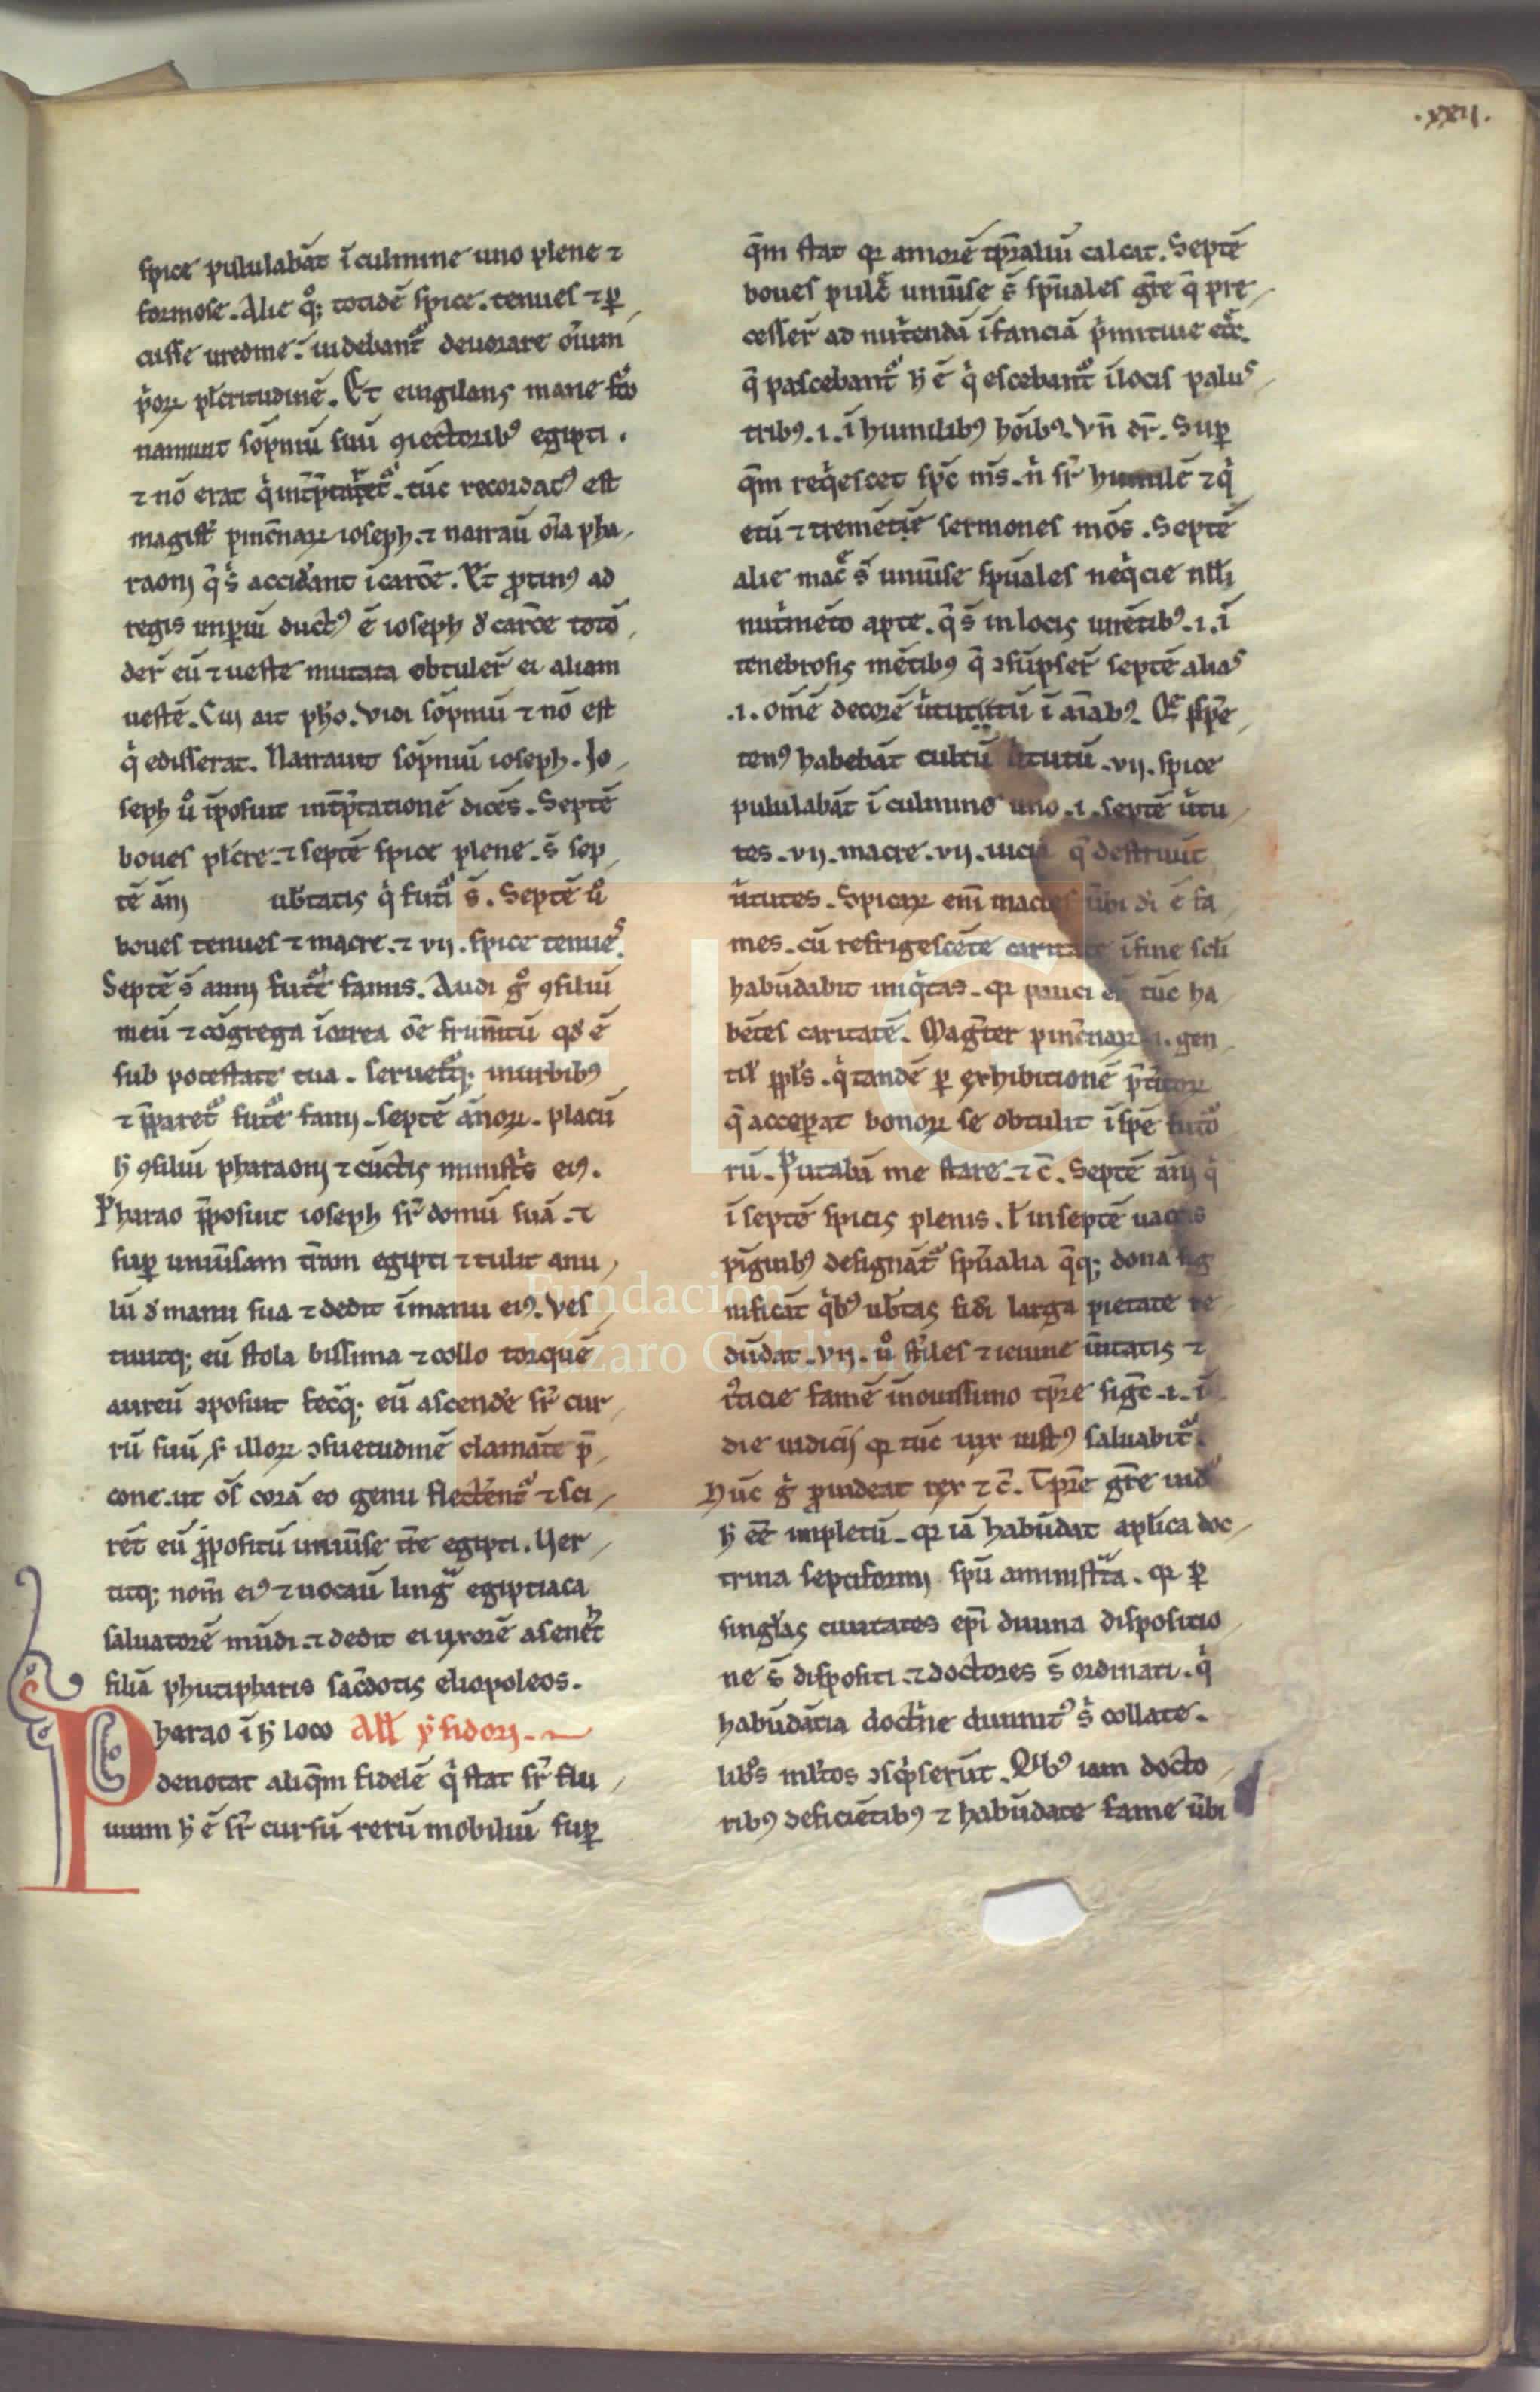 .xxii.
spice pululabāt ī culmine uno plene ⁊
formose. Alie q̊; totidē spice. tenues ⁊ ꝑ
cusse uredine. uidebant᷑ deuorare om̄ium
p̓oꝝ pl̓critudinē. Et euigilans mane
narrauit sōpniū suū ꝯiectorib⁹ egipti.
⁊ nō erat q̓ tūc recordat⁹ est
magist̓ pinc̄naꝝ ioseph. ⁊ narrau̅ oīa pha
raonj q̄ s̓ accid̓ant ī carc̄e. Et ꝓtin⁹ ad
regis imꝑiū duct⁹ ē ioseph d̓ carc̄e toto
der̄ eū ⁊ ueste mutata obtuler̄ ei aliam
uestē. Cui ait ph̓o. Vidi sōpniū ⁊ nō est
q̓ edisserat. Narrauit sōpniū ioseph. Jo
seph ů īposuit int̓p̄tationē dicēs. Septē
boues pl̓cre. ⁊ septē spice plene. s̄ sep
tē ānj ub̓tatis q̓ fut̓i s̄. Septē ů
boues tenues ⁊ macre. ⁊ vij. spice tenues.
Septē s̄ annj fut̓e famis. Audi g̊ ꝯsiliū
meū ⁊ cōgrega ī orrea oē frum̄tū qd̓ ē
sub potestate tua. seruet᷑q; in urbib⁹
⁊ p̄paret᷑ fut̓e famj. septē ānoꝝ. placu̅
h̓ ꝯsiliū pharaonj ⁊ cūctis minist̓s ei⁹.
Pharao p̄posuit ioseph sr̄ domū suā. ⁊
suꝑ uniu̅sam t̄ram egipti ⁊ tulit anu
lū d̓ manu sua ⁊ dedit ī manu ei⁹. Ves
tiuitq; eū stola bissina ⁊ collo torquē
aureū ɔposuit fec̄q; eū ascend̓e sr̄ cur
rū suū. s illoꝝ ɔsuetudinē clamāte p̄
cone. ut oēs corā eo genu flect̓ent᷑ ⁊ sci
rēt eū p̄positū uniu̅se t̄re egipti. Uer
titq; nom̄ ei⁹ ⁊ uocau̅ lingᷓ egiptiaca
saluatorē mūdi. ⁊ dedit ei uxorē asenech
filiā phutipharis sac̄dotis eliopoleos.
Pharao ī h̓ loco All̓ ysidorj.
denotat aliq̄m fidelē q̓ stat sr̄ flu
uium h̓ ē sr̄ cursū rerū mobiliū suꝑ
q̄m stat qꝛ amorē tp̄raliū calcat. Septē
boues pulc̓ uniu̅se s̄ sp̄uales gr̄e q̄ pre
cesser̄ ad nut̓endā īfanciā p̓mitiue ecc̓.
q̄ pascebant᷑ h̓ ē q̓escebant᷑ ī locis palus
trib⁹. i. ī humilib⁹ hoīb⁹. Vn̄ dr̄. Suꝑ
q̄m req̓escet sp̄c m̄s. n̓ sr̄ humilē ⁊ q̓
etū ⁊ tremētē sermones mōs. Septē
alie mac̓ s̄ uniu̅se sp̄uales neq̓cie nll̓i
nut̓mēto apte. q̄ s̄ in locis urētib⁹. i. ī
tenebrosis mētib⁹ q̄ ɔsūpser̄ septē alias
.i. om̄ē decorē u̓tutū ī aīab⁹.
ten⁹ habebāt cultū u̓tutū. vij. spice
pululabāt ī culmine uno. i. septē u̓tu
tes. vij. macre. vij. uicia q̄ destruūt
u̓tutes. Spicaꝝ enī macies u̅bi di̓ ē fa
mes. cū refrigescēte caritate ī fine scl̓i
habūdabit iniq̓tas. qꝛ pauci er̄ tūc ha
bētes caritatē. Magister pinc̄naꝝ. i. gen
til̓ ppl̓s. q̓ tandē ꝑ exhibitionē
q̄ acceꝑat bonoꝝ se obtulit ī spē futo
rū. Putabā me stare. ⁊ c̄. Septē annj q̓
ī septē spicis plenis. l̓ in septē uaccis
pīguib⁹ designāt᷑ sp̄ualia q̄q; dona sig
nificāt q̓b⁹ ub̓tas fid̓i larga pietate re
dūdat. vij. ů st̓iles ⁊ ieiune u̅itatis ⁊
famē ī nouissimo tp̄re sigc̄. i. ī
die iudicij qꝛ tūc uix iust⁹ saluabit᷑.
Nūc g̊ ꝓuideat rex ⁊ c̄. Tp̄re gr̄e uid̓
h̓ eē impletū. qꝛ iā habūdat apl̓ica doc
trina septiformj sp̄u aministᷓta. qꝛ ꝑ
singl̓as ciuitates ep̄i diuina dispositio
ne s̄ dispositi. ⁊ doctores s̄ ordinati. q̓
habūdātia doct̓ne diuinit⁹ s̓ collate.
lib̓s ml̓tos ɔsc̓pserūt. Q̓b⁹ iam docto
rib⁹ deficiētib⁹ ⁊ habūdāte fame u̅bi